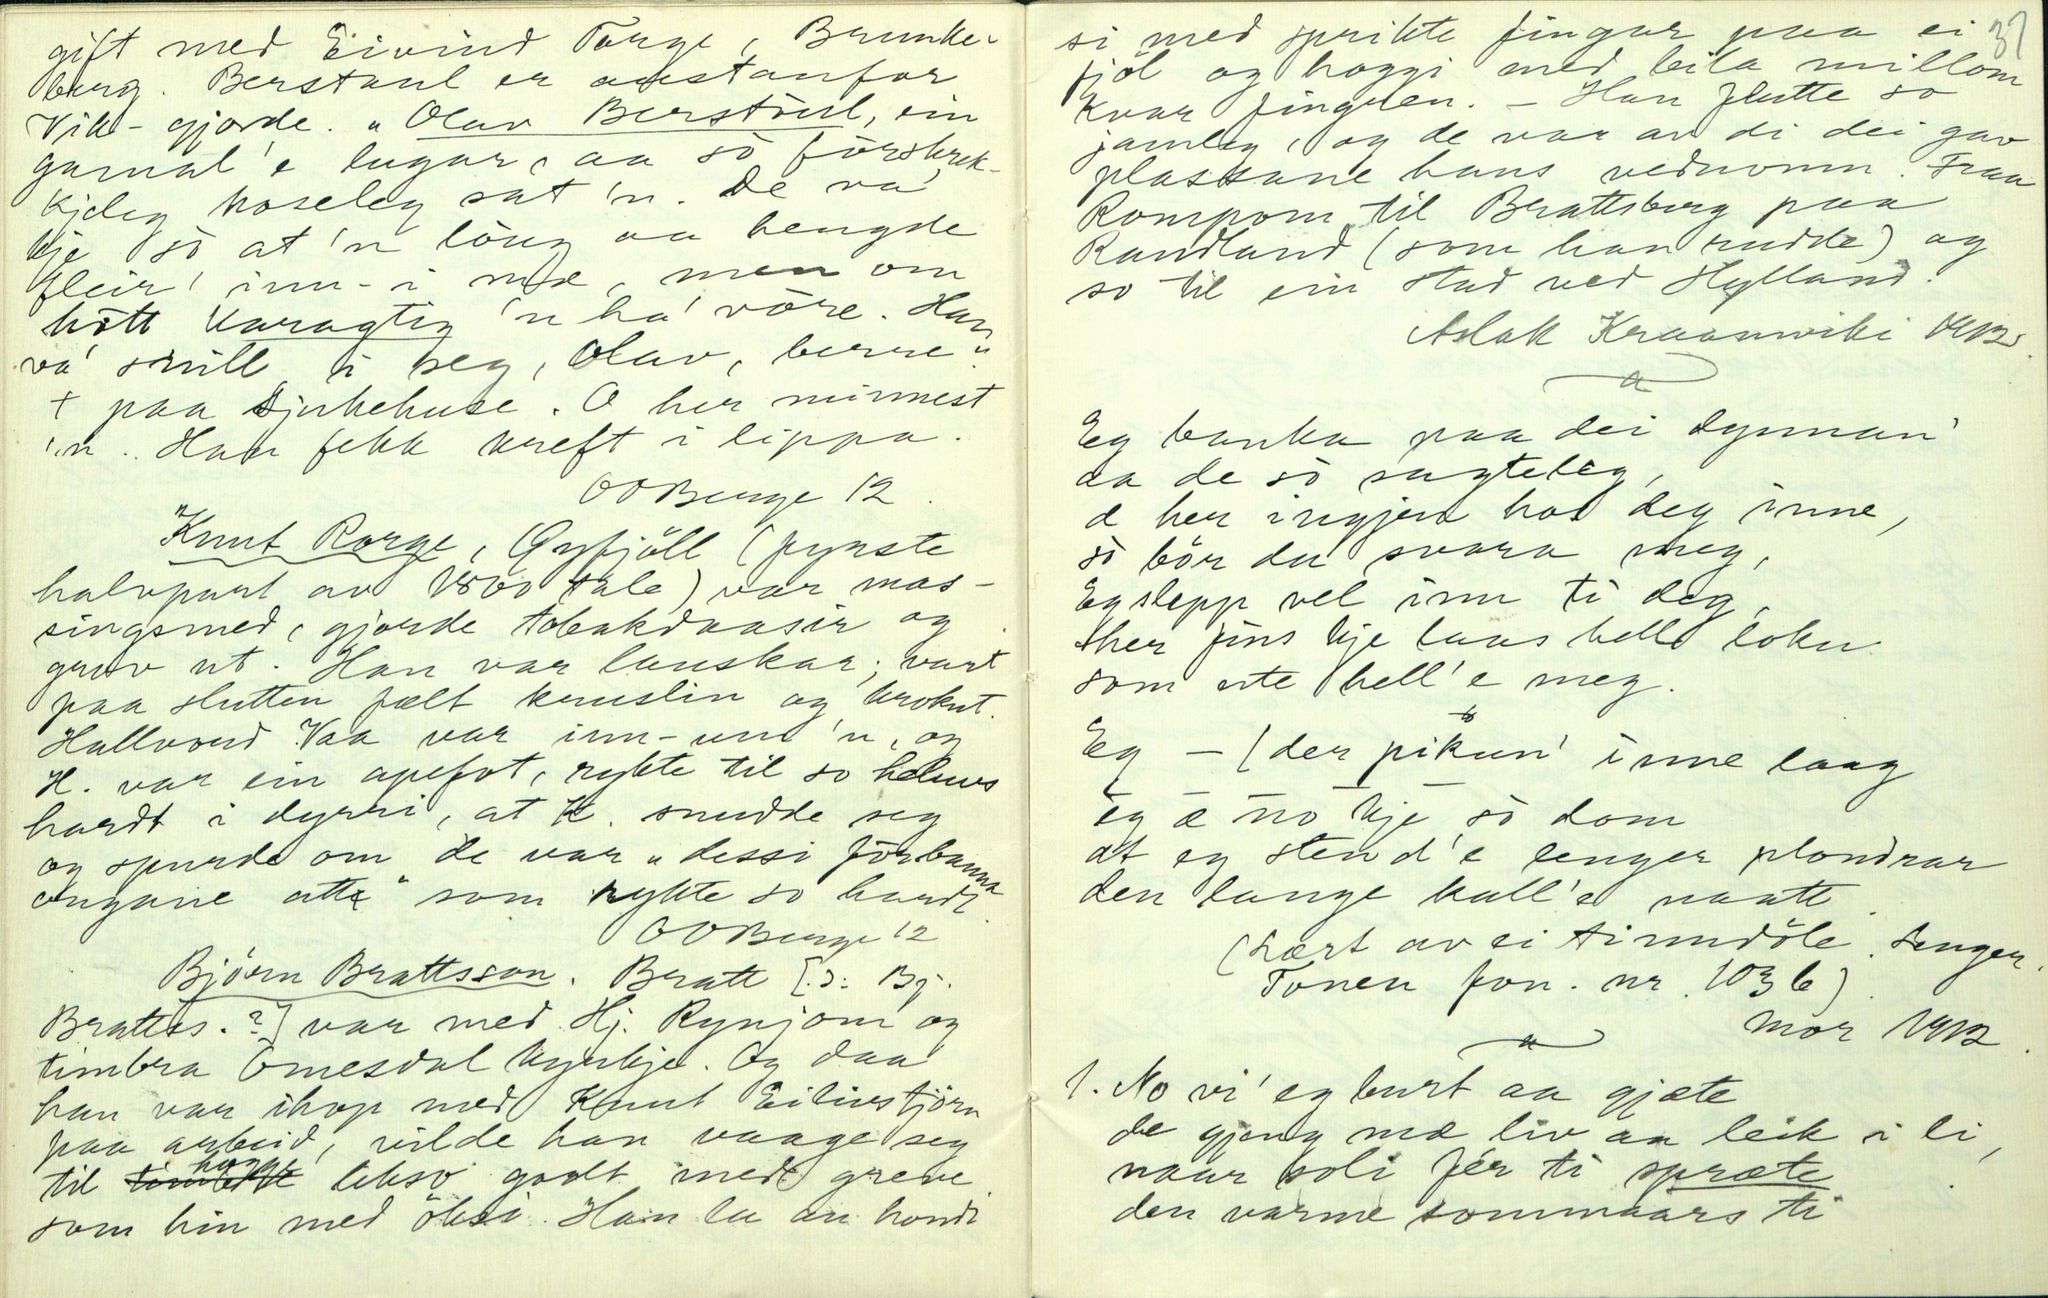 gift med Eivind Targe, Brunke-
berg. Berstaul er austanfor
Vik-gjorde. "Olav Berstöul, ein
gamal'e lugar, aa sò förskrek-
kjeleg koseleg sat'n. De va'
kje sò at'n löug aa hengde
fleir' inn-i mæ, men om
hòtt karagtig 'n ha' vöre. Han
va' snill i seg, Olav, berre"
+ paa sjukehuse. O her minnest
'n. Han fekk kreft i lippa.
OOBerge 12.
Knut Rorge, Øyfjöll (fyrste
halvpart av 1800 tale) var mas-
singsmed, gjorde tobakdaasir og
grov ut. Han var lauskar; vart
paa slutten fælt kruslin og krokut.
Hallvord Vaa var inn-um 'n, og
H. var ein apefot, rykte til so heluvs
hardt i dyrri, at K. snudde seg
og spurde om de var "dessi förbanna
ongane atte" som rykte so hardt.
OOBerge 12
Björn Brattsson. Bratt [ɔ: Bj.
Bratts.?] var med Hj. Rynjom og
timbra Omesdal kyrkje. Og daa
han var ihop med Knut Eilivstjörn
paa arbeid, vilde han vaage seg
til timbre hogge likso godt med greve
som hin med öksi. Han la an hondi
37
si med sprikte fingar paa ei
fjöl og hoggi med bila millom
kvar fingren. – Han flutte so
jamleg, og de var av di dei gav
plassane hans vednomn. Fraa
Rompom til Brattsberg paa
Raudland (som han rudde) og
so til ein stad ved Hylland.
Aslak Kraanwiki 1912.
Eg banka paa dei dynnan'
aa de sò sagteleg,
æ her ingjen hos deg inne,
sò bör du svara meg,
Eg slepp vel inn ti deg,
her fins kje laas hell loku
som ute hell'e meg.
Eg – (der pikun' inne laag
eg æ no kje sò dom
at eg stend'e lenger plondrar
den lange kall'e naatt.
(Lært av ei tinndöle. Lenger.
Tonen fon. nr. 103 b)
Mor 1912.
1. No vi' eg burt aa gjæte
de gjeng mæ liv aa leik i li,
naar soli fér ti spræte
den varme sommaars ti